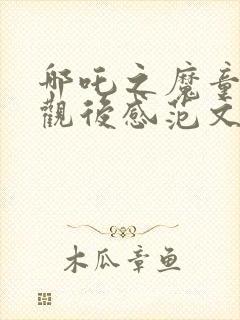 哪吒之魔童
觀後感范文
木瓜章鱼